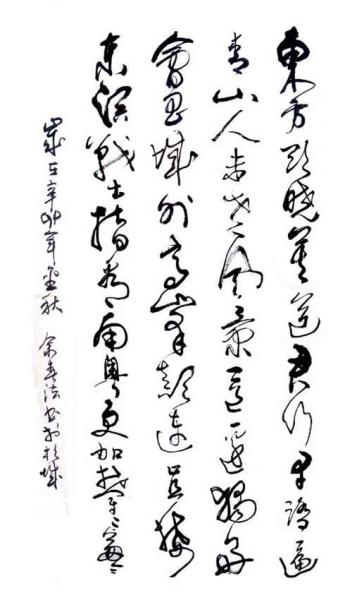 東方欲晓莫道君行早踏遍
青山人未老风景这边独好
會昌城外高峰颠连直接
东溟战士指看南粤更加郁郁葱葱
歲在辛卯年孟秋 余春法书于杭城